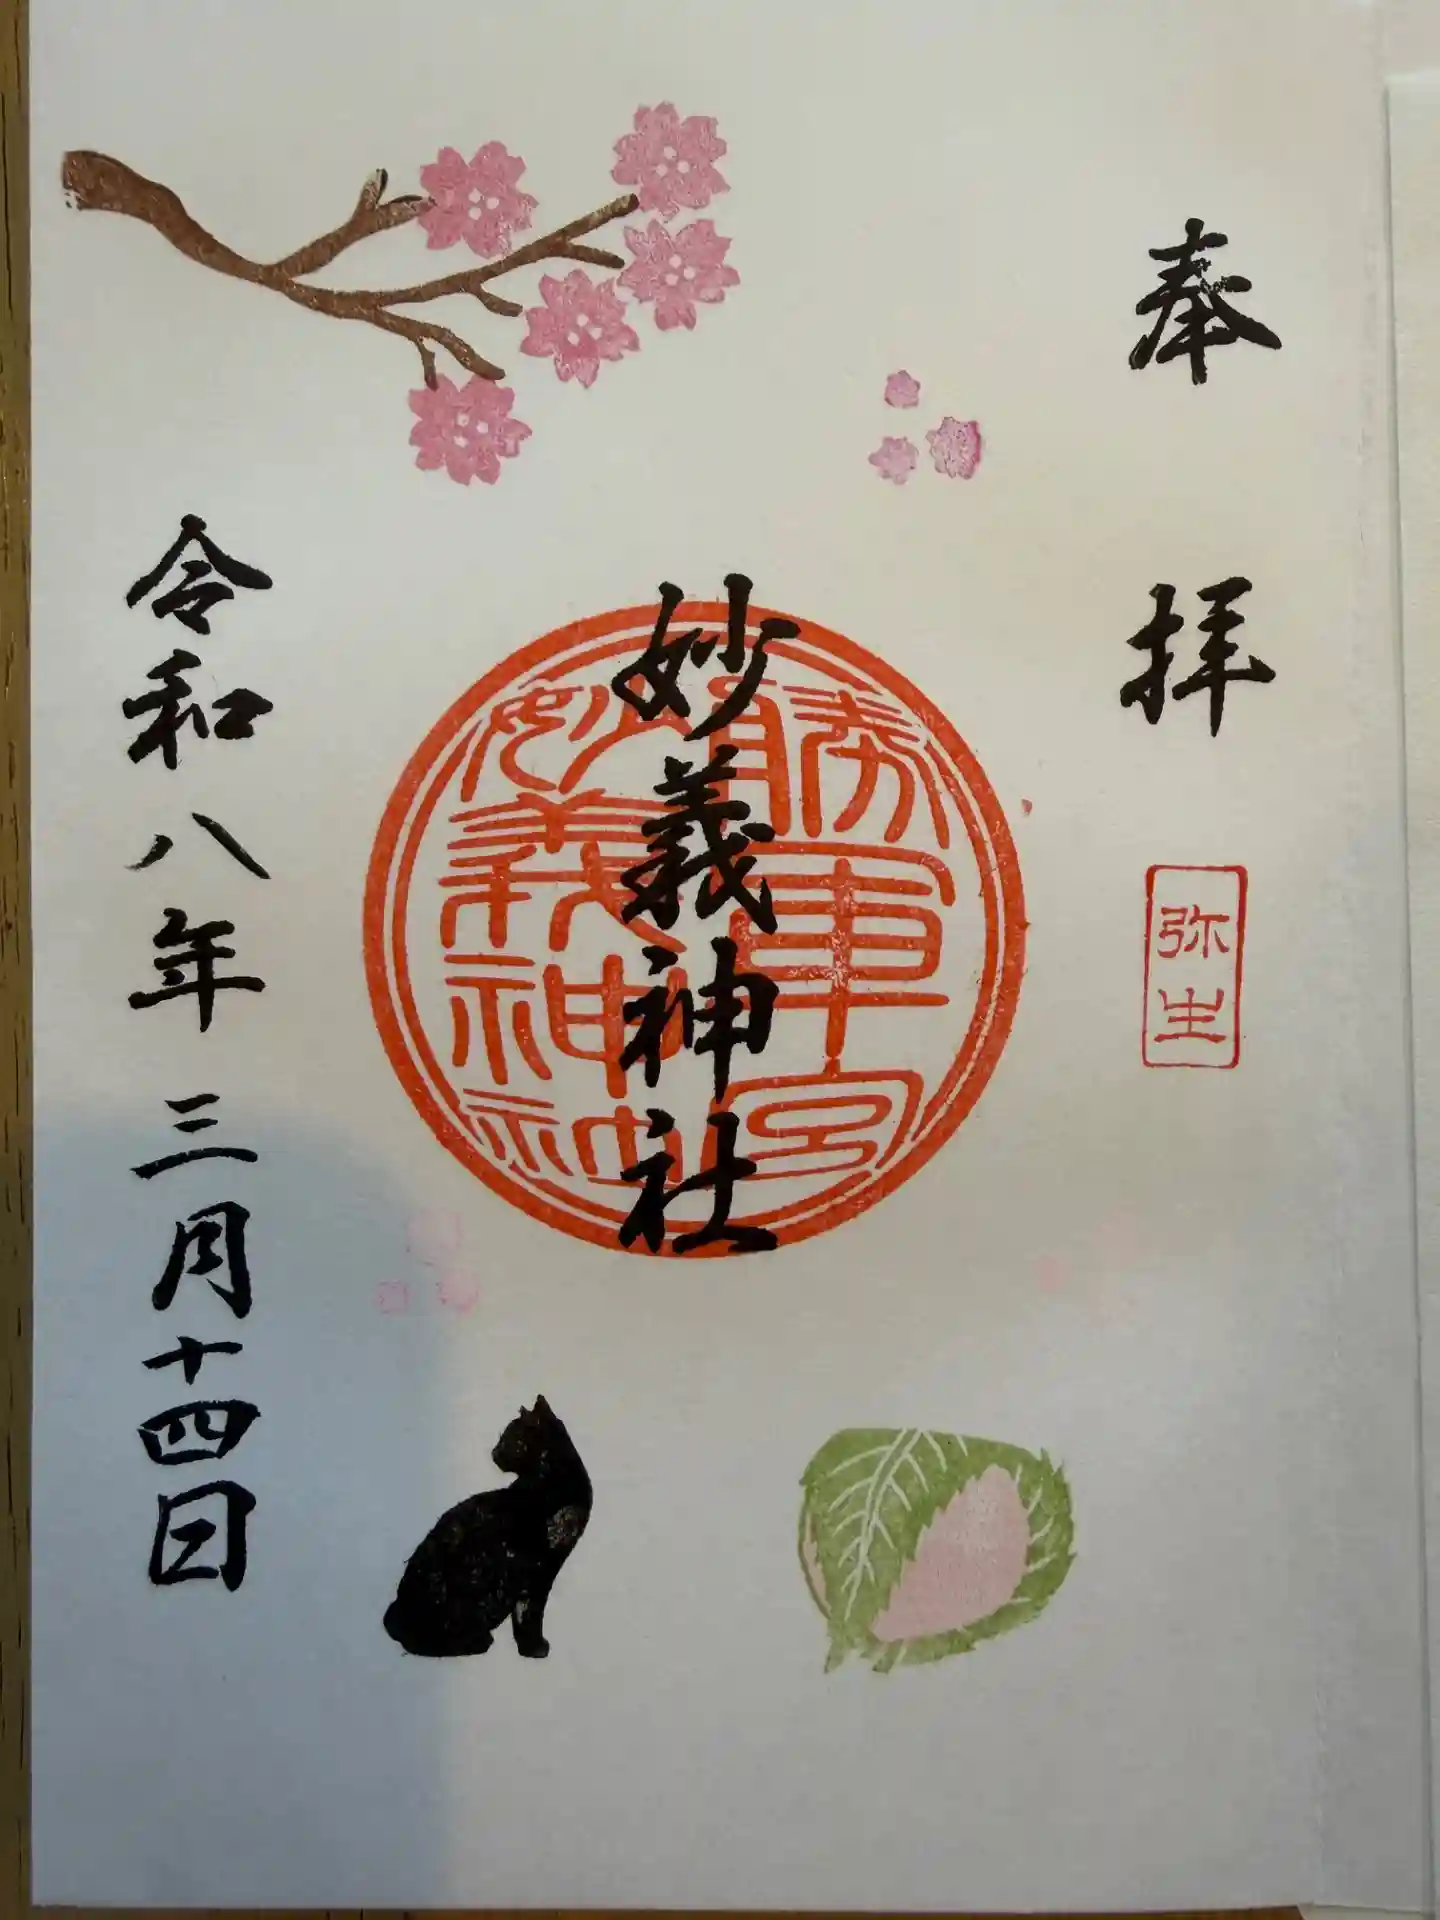 奉拝
弥生
妙義神社
勝軍宮
妙義神社
令和八年三月十四日